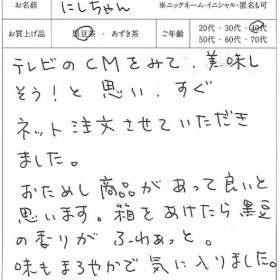 お名前 にしちゃん ※ニックネーム・イニシャル・匿名も可
お買上げ品 黒豆茶 ・ あずき茶 ご年齢 20代・30代・40代
50代・60代・70代
テレビのCMをみて、美味し
そう!と思い、すぐ
ネット注文させていただき
ました。
おためし商品があって良いと
思います。箱をあけたら黒豆
の香りが ふわぁっと。
味もまろやかで気に入りました。